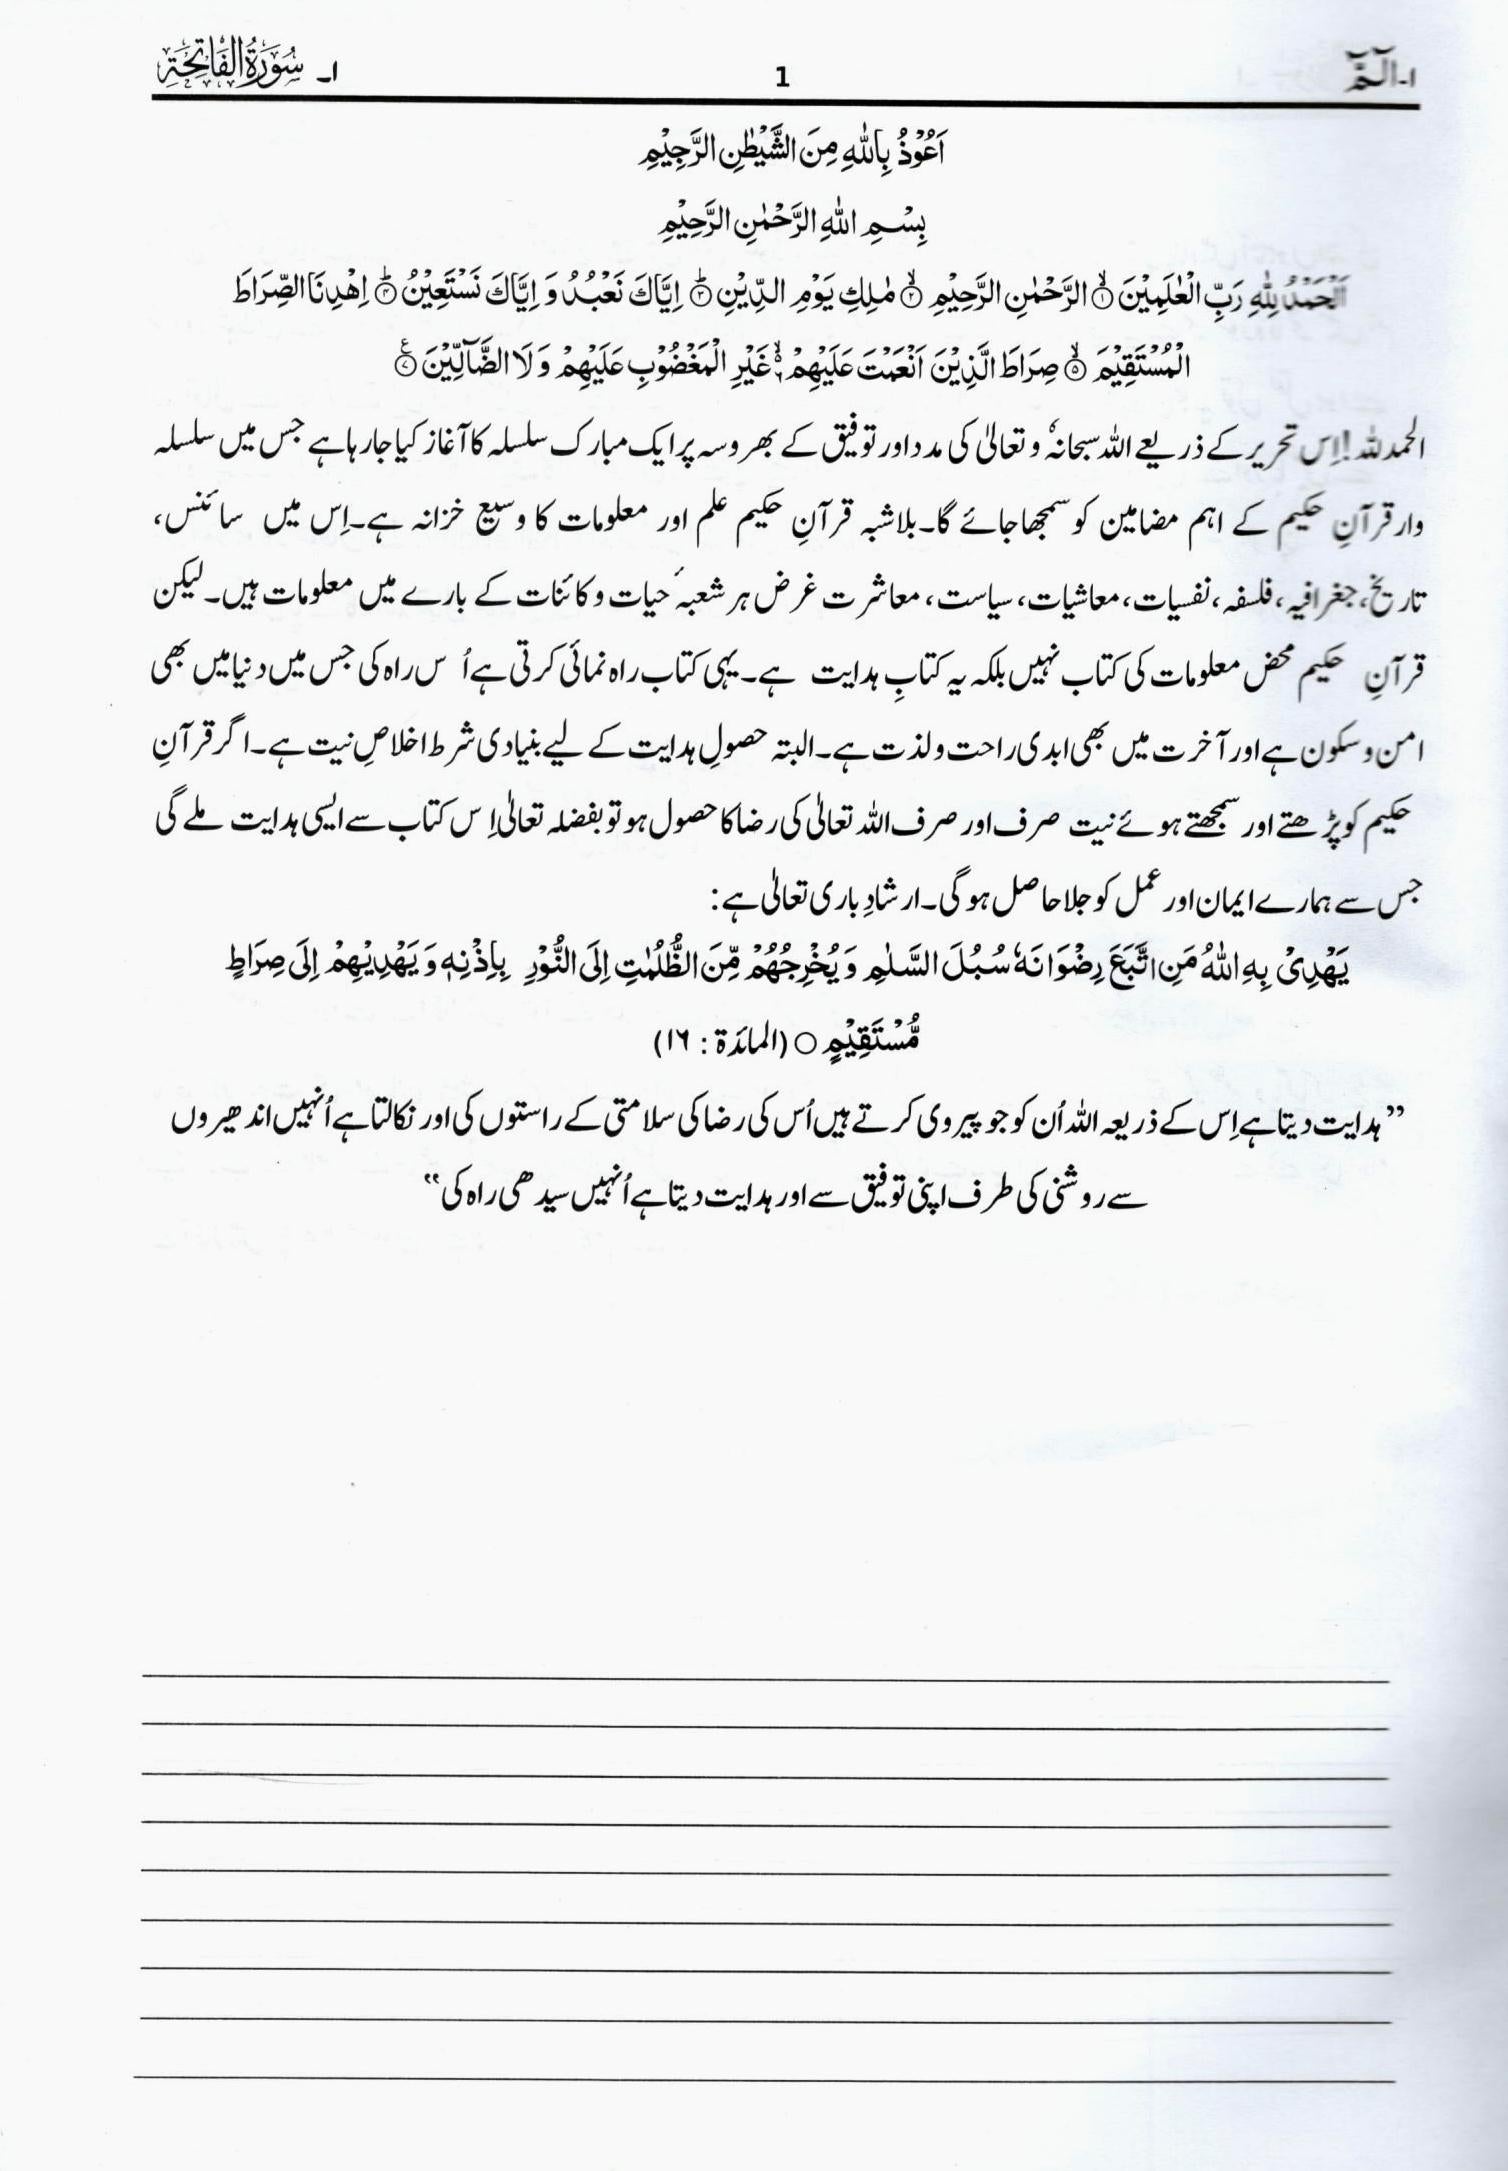 ۱-الٓمّٓ 1 ۱۔ سُوْرَةُ الْفَاتِحَةِ
اَعُوْذُ بِاللّٰهِ مِنَ الشَّيْطٰنِ الرَّجِيْمِ
بِسْمِ اللّٰهِ الرَّحْمٰنِ الرَّحِيْمِ
اَلْحَمْدُ لِلّٰهِ رَبِّ الْعٰلَمِيْنَ ۙ﴿۱﴾ الرَّحْمٰنِ الرَّحِيْمِ ۙ﴿۲﴾ مٰلِكِ يَوْمِ الدِّيْنِ ؕ﴿۳﴾ اِيَّاكَ نَعْبُدُ وَ اِيَّاكَ نَسْتَعِيْنُ ؕ﴿۴﴾ اِهْدِنَا الصِّرَاطَ
الْمُسْتَقِيْمَ ۙ﴿۵﴾ صِرَاطَ الَّذِيْنَ اَنْعَمْتَ عَلَيْهِمْ ۙ۬ غَيْرِ الْمَغْضُوْبِ عَلَيْهِمْ وَ لَا الضَّآلِّيْنَ ﴿۷﴾
الحمدللہ! اِس تحریر کے ذریعے اللہ سبحانہٗ و تعالیٰ کی مدد اور توفیق کے بھروسہ پر ایک مبارک سلسلہ کا آغاز کیا جا رہا ہے جس میں سلسلہ
وار قرآنِ حکیم کے اہم مضامین کو سمجھا جائے گا۔ بلاشبہ قرآنِ حکیم علم اور معلومات کا وسیع خزانہ ہے۔ اِس میں سائنس،
تاریخ، جغرافیہ، فلسفہ، نفسیات، معاشیات، سیاست، معاشرت غرض ہر شعبہٴ حیات و کائنات کے بارے میں معلومات ہیں۔ لیکن
قرآنِ حکیم محض معلومات کی کتاب نہیں بلکہ یہ کتابِ ہدایت ہے۔ یہی کتاب راہ نمائی کرتی ہے اُس راہ کی جس میں دنیا میں بھی
امن و سکون ہے اور آخرت میں بھی ابدی راحت و لذت ہے۔ البتہ حصولِ ہدایت کے لیے بنیادی شرط اخلاصِ نیت ہے۔ اگر قرآنِ
حکیم کو پڑھتے اور سمجھتے ہوئے نیت صرف اور صرف اللہ تعالیٰ کی رضا کا حصول ہو تو بفضلہ تعالیٰ اِس کتاب سے ایسی ہدایت ملے گی
جس سے ہمارے ایمان اور عمل کو جلا حاصل ہو گی۔ ارشادِ باری تعالیٰ ہے:
يَهْدِيْ بِهِ اللّٰهُ مَنِ اتَّبَعَ رِضْوَانَهٗ سُبُلَ السَّلٰمِ وَ يُخْرِجُهُمْ مِّنَ الظُّلُمٰتِ اِلَى النُّوْرِ بِاِذْنِهٖ وَ يَهْدِيْهِمْ اِلٰى صِرَاطٍ
مُّسْتَقِيْمٍ ○ (المائدۃ : ۱۶)
”ہدایت دیتا ہے اِس کے ذریعہ اللہ اُن کو جو پیروی کرتے ہیں اُس کی رضا کی سلامتی کے راستوں کی اور نکالتا ہے اُنہیں اندھیروں
سے روشنی کی طرف اپنی توفیق سے اور ہدایت دیتا ہے اُنہیں سیدھی راہ کی“